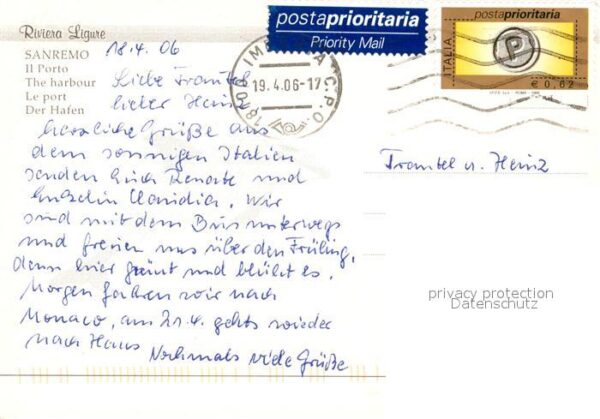 Riviera Ligure
SANREMO
Il Porto
The harbour
Le port
Der Hafen
18.4.06
Liebe Trautel
lieber Heinz
herzliche Grüße aus
dem sonnigen Italien
senden Euch Renate und
Enkelin Claudia. Wir
sind mit dem Bus unterwegs
und freuen uns über den Früling,
denn hier grünt und blüht es.
Morgen fahren wir nach
Monaco, am 21.4. gehts wieder
nach Haus
Nochmals viele Grüße
postaprioritaria
Priority Mail
19.4.06-17
C.P.O.
postaprioritaria
ITALIA
P
€ 0,62
Trautel u. Heinz
privacy protection
Datenschutz